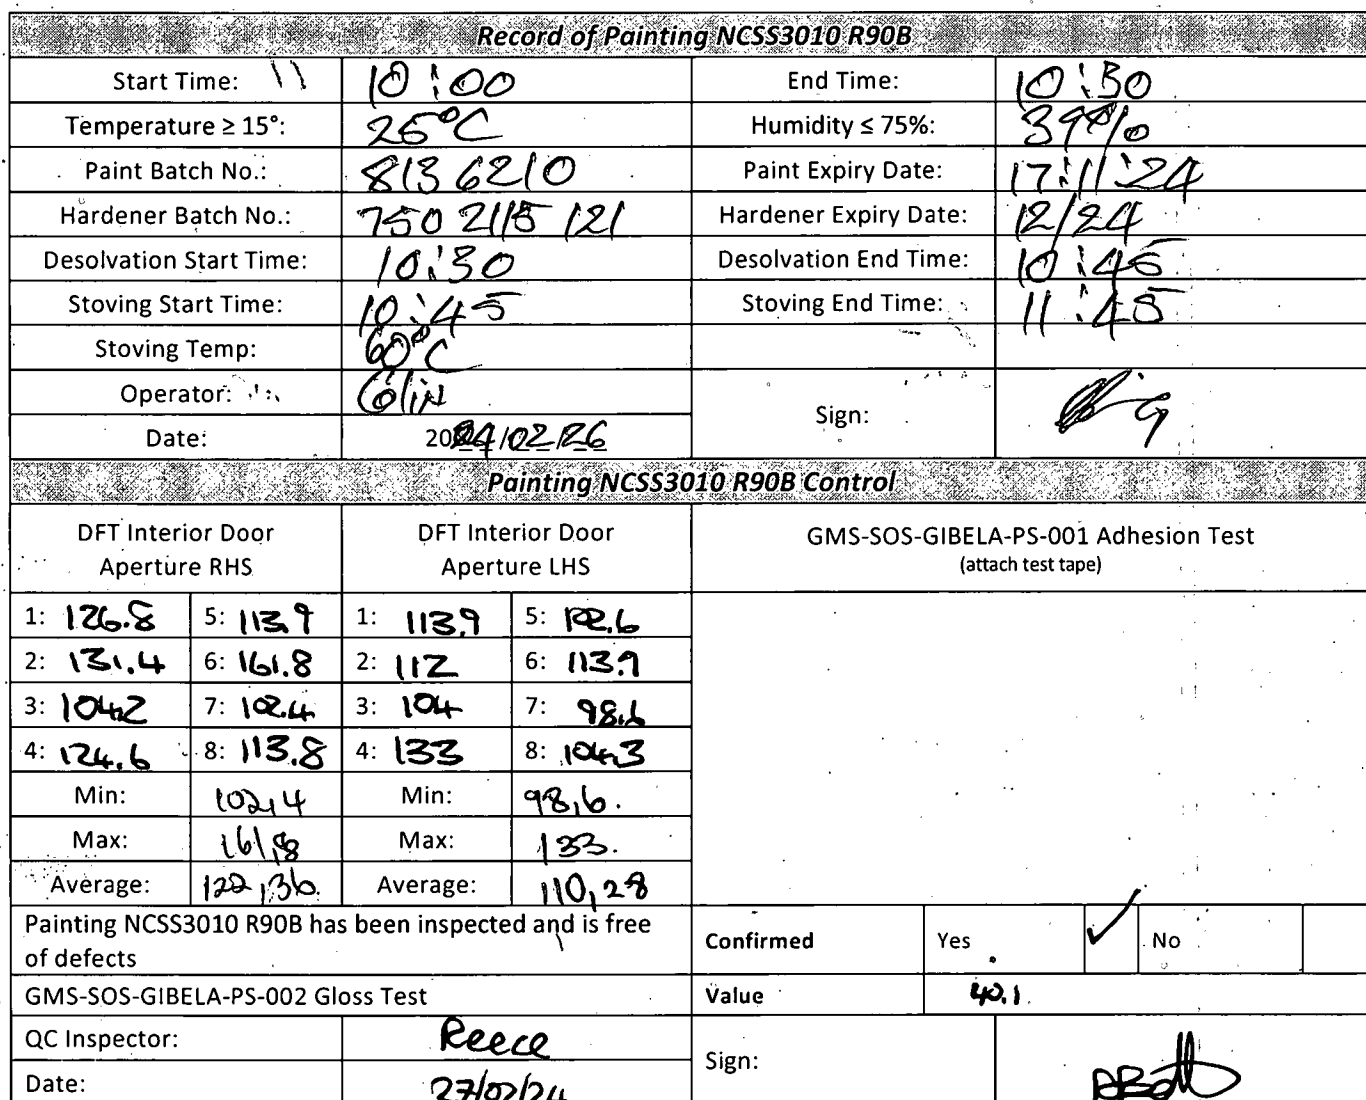 Record of Painting NCSS3010 R90B
Start Time: 10:00 End Time: 10:30
Temperature ≥ 15°: 25°C Humidity ≤ 75%: 39%
Paint Batch No.: 8136210 Paint Expiry Date: 17:11:24
Hardener Batch No.: 750 2115 121 Hardener Expiry Date: 12/24
Desolvation Start Time: 10:30 Desolvation End Time: 10:45
Stoving Start Time: 10:45 Stoving End Time: 11:45
Stoving Temp: 60°C
Operator: Colin
Sign:
Date: 2024/02/26
Painting NCSS3010 R90B Control
DFT Interior Door DFT Interior Door GMS-SOS-GIBELA-PS-001 Adhesion Test
Aperture RHS Aperture LHS (attach test tape)
1: 126.8 5: 113.9 1: 113.9 5: 102.6
2: 131.4 6: 161.8 2: 112 6: 113.9
3: 104.2 7: 102.4 3: 104 7: 98.6
4: 124.6 8: 113.8 4: 133 8: 104.3
Min: 102,4 Min: 98,6.
Max: 161,8 Max: 133.
Average: 122,36. Average: 110,28
Painting NCSS3010 R90B has been inspected and is free
of defects
Confirmed Yes ✓ No
GMS-SOS-GIBELA-PS-002 Gloss Test Value 40.1
QC Inspector: Reece
Sign:
Date: 27/02/24